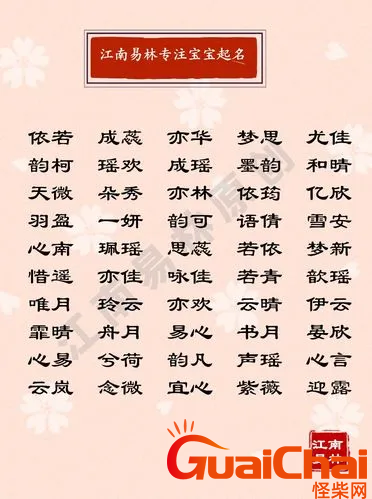 江南易林专注宝宝起名
依若 成蕊 亦华 梦思 尤佳
韵柯 瑶欢 成瑶 墨韵 和晴
天微 朵秀 亦林 依筠 亿欣
羽盈 一妍 韵可 语倩 雪安
心南 珮瑶 思蕊 若依 梦新
惜遥 亦佳 咏佳 若青 歆瑶
唯月 玲云 亦欢 云晴 伊云
霏晴 舟月 易心 书月 晏欣
心易 兮荷 韵凡 声瑶 心言
云岚 念微 宜心 紫薇 迎露
江南易林原创
江南
易林
GuaiChai
怪柴网